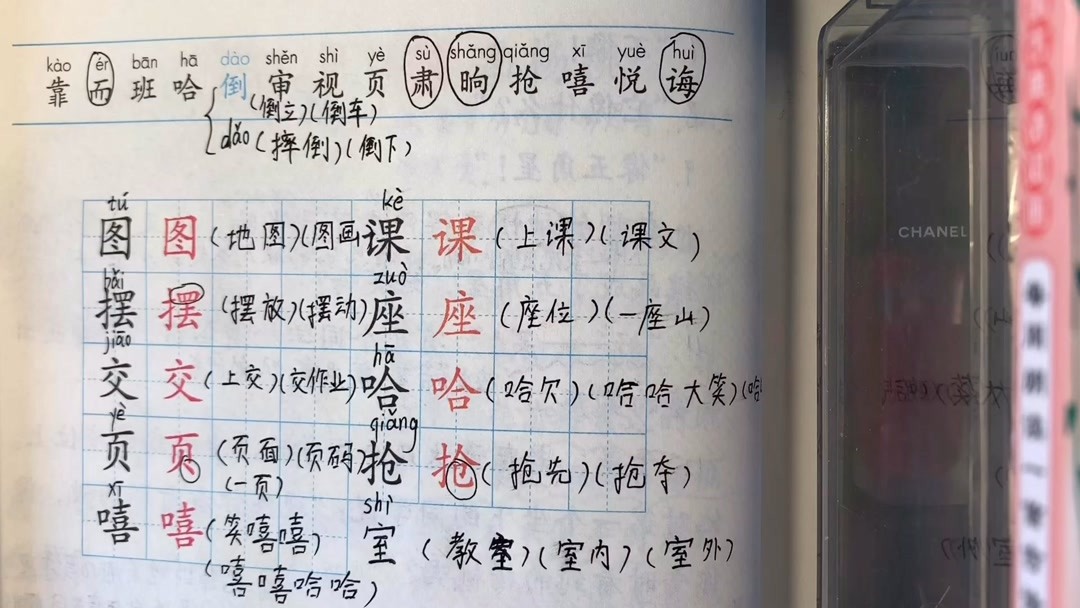 kào ér bān hā dào shěn shì yè sù shǎng qiǎng xī yuè huì
靠 而 班 哈 倒 审 视 页 肃 晌 抢 嘻 悦 诲
(倒立)(倒车)
dǎo (摔倒)(倒下)
tú kè
图 图 (地图)(图画 课 课 (上课)(课文)
bǎi zuò
摆 摆 (摆放)(摆动) 座 座 (座位)(一座山)
jiāo hā
交 交 (上交)(交作业) 哈 哈 (哈欠)(哈哈大笑)(哈
yè qiǎng
页 页 (页面)(页码) 抢 抢 (抢先)(抢夺)
(一页)
xī shì
嘻 嘻 (笑嘻嘻) 室 (教室)(室内)(室外)
(嘻嘻哈哈)
CHANEL